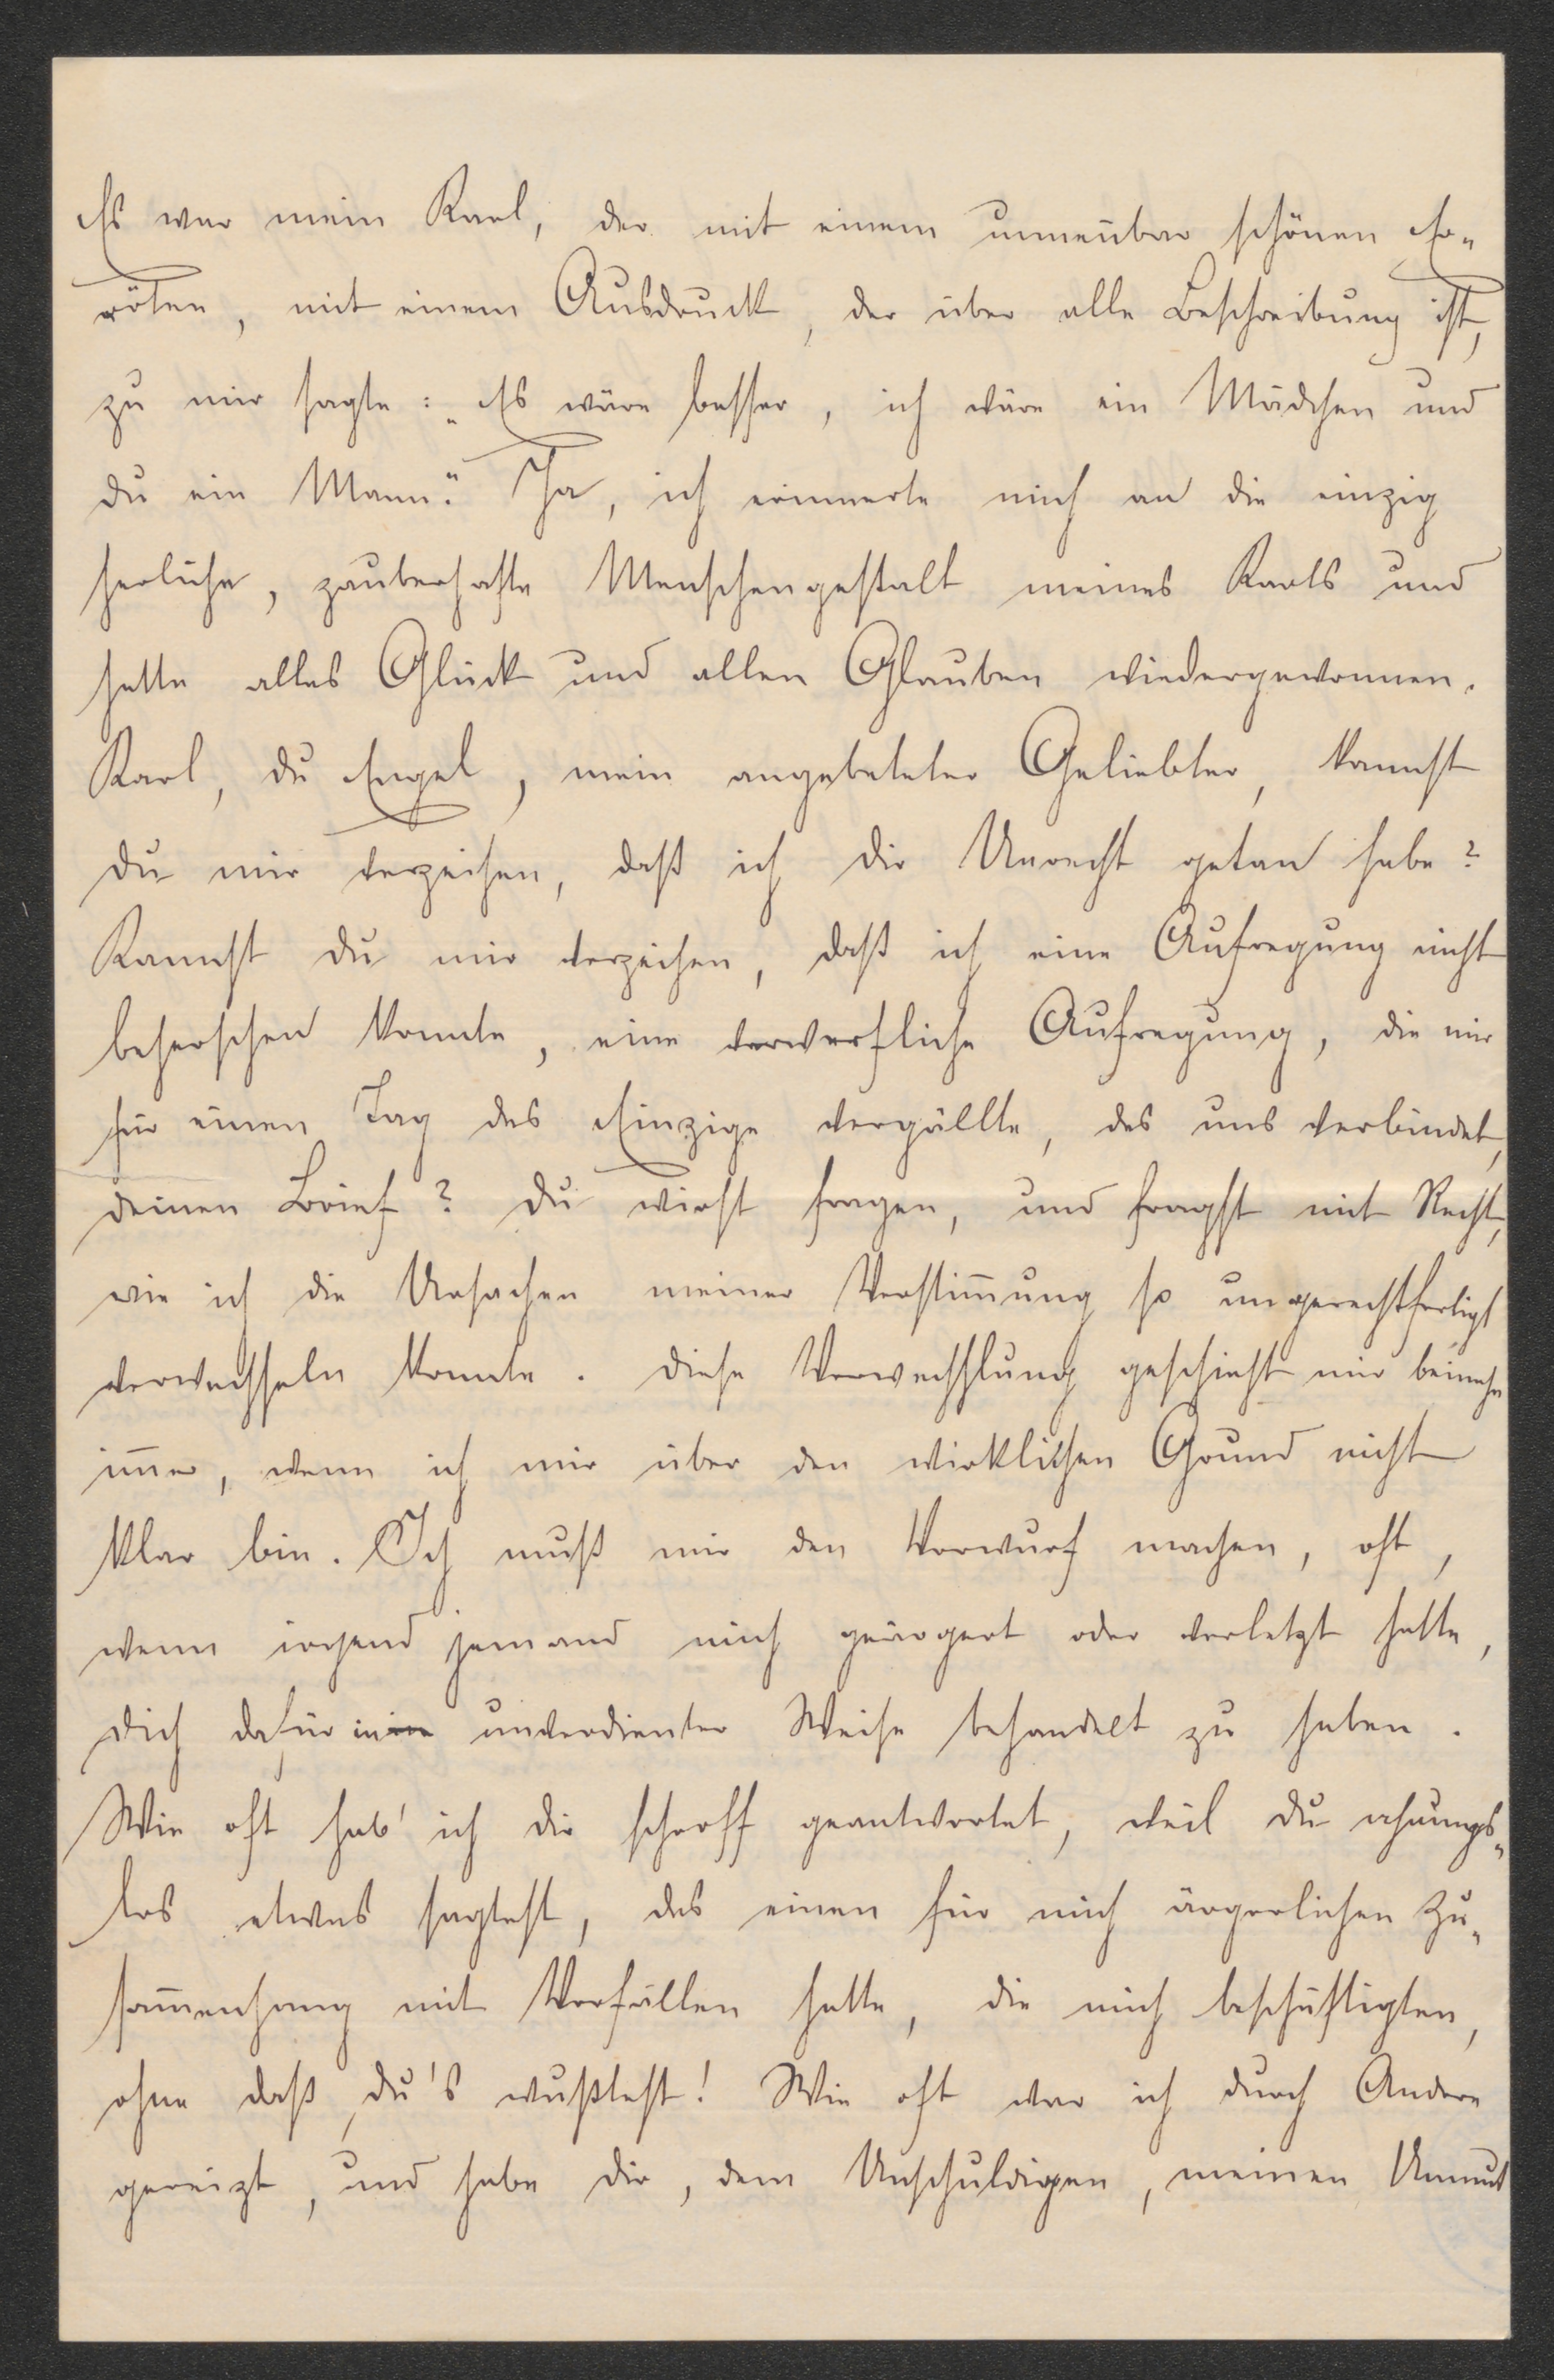 Es war mein Karl, der mit einem unnen̄bar schönen Er-
röten, mit einem Ausdruck, der über alle Beschreibung ist,
zu mir sagte: „Es wäre besser, ich wäre ein Mädchen und
du ein Mann.“ Ja, ich erinnerte mich an die einzig
herliche, zauberhafte Menschengestalt meines Karls und
hatte alles Glück und allen Glauben wiedergewonnen.
Karl, du Engel, mein angebeteter Geliebter, kannst
du mir verzeihen, daß ich dir Unrecht getan habe?
Kannst du mir verzeihen, daß ich eine Aufregung nicht
beherschen konnte, eine verwerfliche Aufregung, die mir
für einen Tag das Einzige vergällte, das uns verbindet,
deinen Brief? Du wirst fragen, und fragst mit Recht,
wie ich die Ursachen meiner Verstim̄ung so ungerechtfertigt
verwechseln konnte. Diese Verwechslung geschieht mir beinahe
im̄er, wenn ich mir über den wirklichen Grund nicht
klar bin. Ich muß mir den Vorwurf machen, oft,
wenn irgend jemand mich geärgert oder verletzt hatte,
dich dafür in unverdienter Weise behandelt zu haben.
Wie oft hab' ich dir schroff geantwortet, weil du ahnungs-
los etwas sagtest, das einen für mich ärgerlichen Zu-
sam̄enhang mit Vorfällen hatte, die mich beschäftigten,
ohne daß du's wußtest! Wie oft war ich durch Andere
gereizt, und habe dir, dem Unschuldigen, meinen Unmut